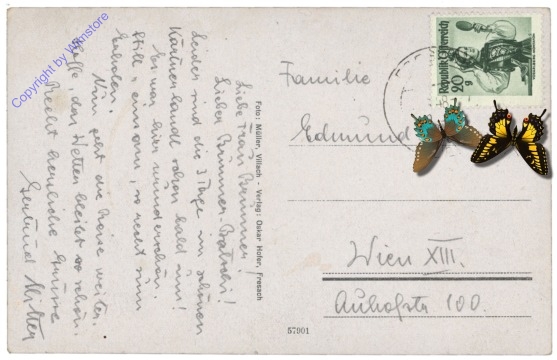 Liebe Frau Brünner!
Lieber Brünner-Bratschi!
Leider sind die 3 Tage im schönen
Kärtnerlandl schon bald um!
Es war hier wunderschön.
Still, einsam, so recht zum
Erholen.
Nun geht die Reise weiter.
Hoffe, das Wetter bleibt so schön.
Recht herzliche Grüsse
Gertrud
Foto: Müller, Villach - Verlag: Oskar Hofer, Fresach
57901
Republik Österreich
20 g
Familie
Edmund
Wien XIII.
Auhofstr 100.
Copyright by Wknstore